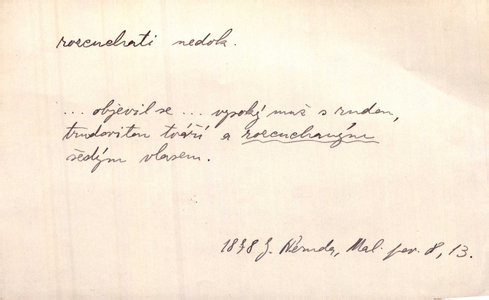 rozcuchati nedok.
... objevil se ... vysoký muž s rudou,
trudovitou tváří a rozcuchaným
šedým vlasem.
1878 J. Neruda, Mal. pov. 8, 13.